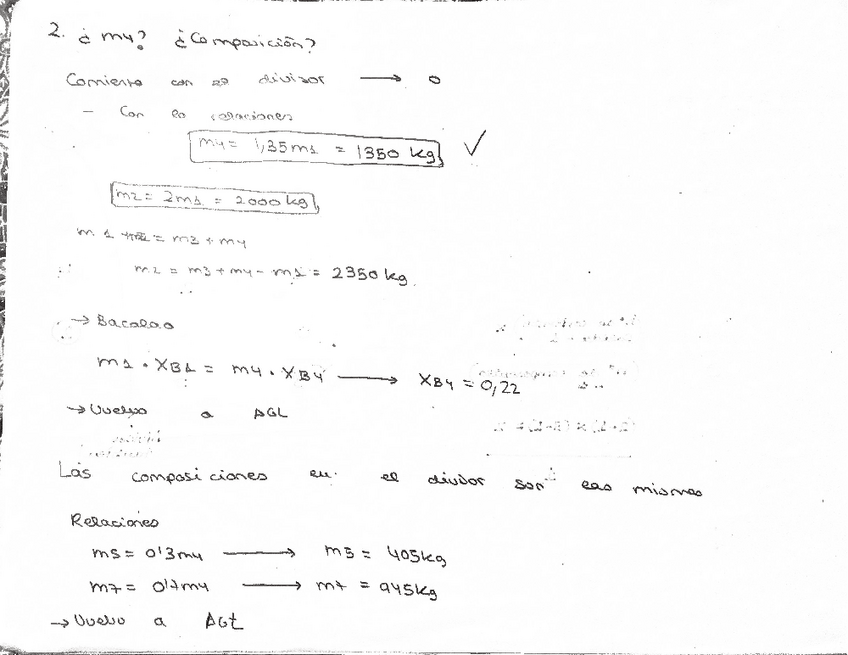 2. ¿ m4? ¿Composición?
Comienzo con el divisor → 0
- Con la relaciones
m4 = 1,35m1 = 1350 kg ✓
m2 = 2m1 = 2000 kg
m1 + m2 = m3 + m4
m2 = m3 + m4 - m1 = 2350 kg
→ Bacalao
m1 · XB1 = m4 · XB4 → XB4 = 0,22
→ Vuelvo a AGL
Las composiciones en el divisor son las mismas
Relaciones
m5 = 0'3m4 → m5 = 405kg
m7 = 0'7m4 → m7 = 945kg
→ Vuelvo a AGL